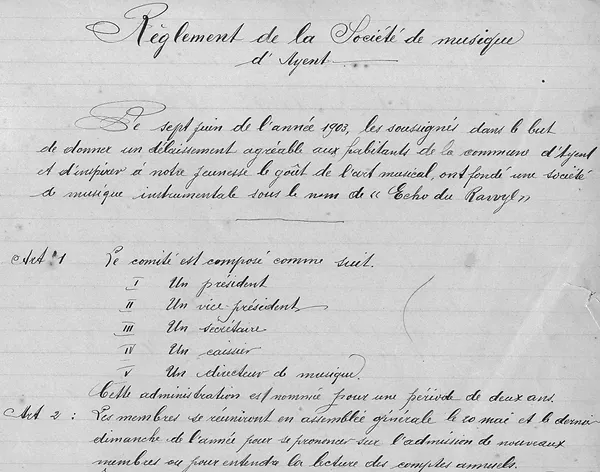 Règlement de la Société de musique
d'Ayent
Le sept juin de l'année 1903, les soussignés dans le but
de donner un délaissement agréable aux habitants de la commune d'Ayent
et d'inspirer à notre jeunesse le goût de l'art musical, ont fondé une société
de musique instrumentale sous le nom de « Echo du Rawyl »
Art 1 Le comité est composé comme suit.
I Un président
II Un vice-président
III Un secrétaire
IV Un caissier
V Un directeur de musique.
Cette administration est nommée pour une période de deux ans.
Art 2 : Les membres se réuniront en assemblée générale le 20 mai et le dernier
dimanche de l'année pour se prononcer sur l'admission de nouveaux
membres ou pour entendre la lecture des comptes annuels.